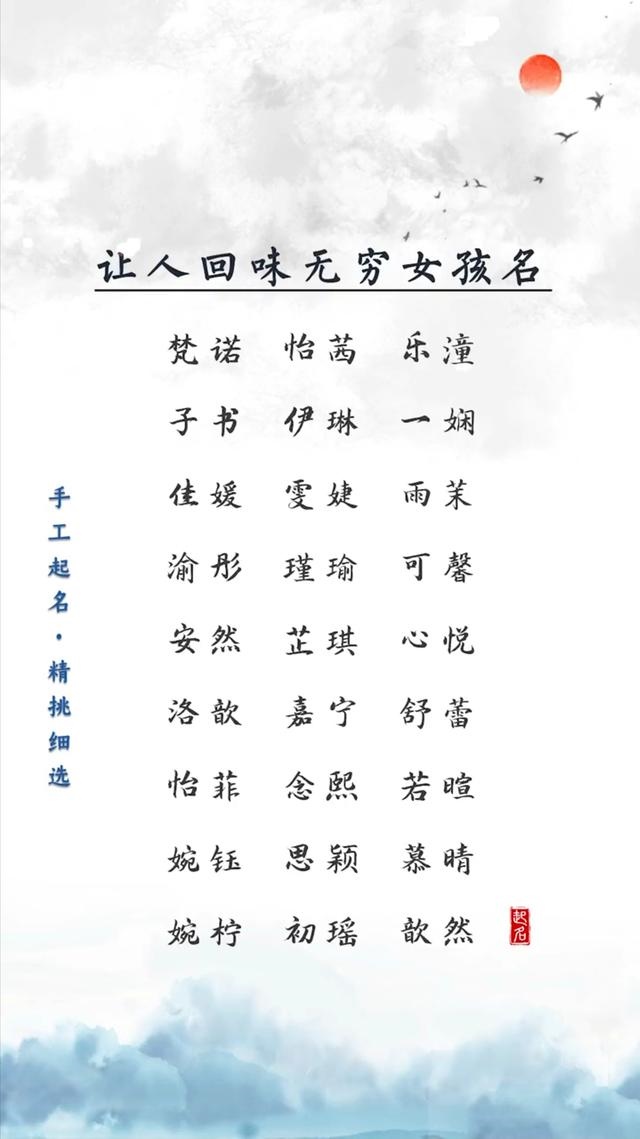 让人回味无穷女孩名
梵诺 怡茜 乐潼
子书 伊琳 一娴
佳媛 雯婕 雨茉
渝彤 瑾瑜 可馨
安然 芷琪 心悦
洛歆 嘉宁 舒蕾
怡菲 念熙 若暄
婉钰 思颖 慕晴
婉柠 初瑶 歆然
手工起名·精挑细选
起名